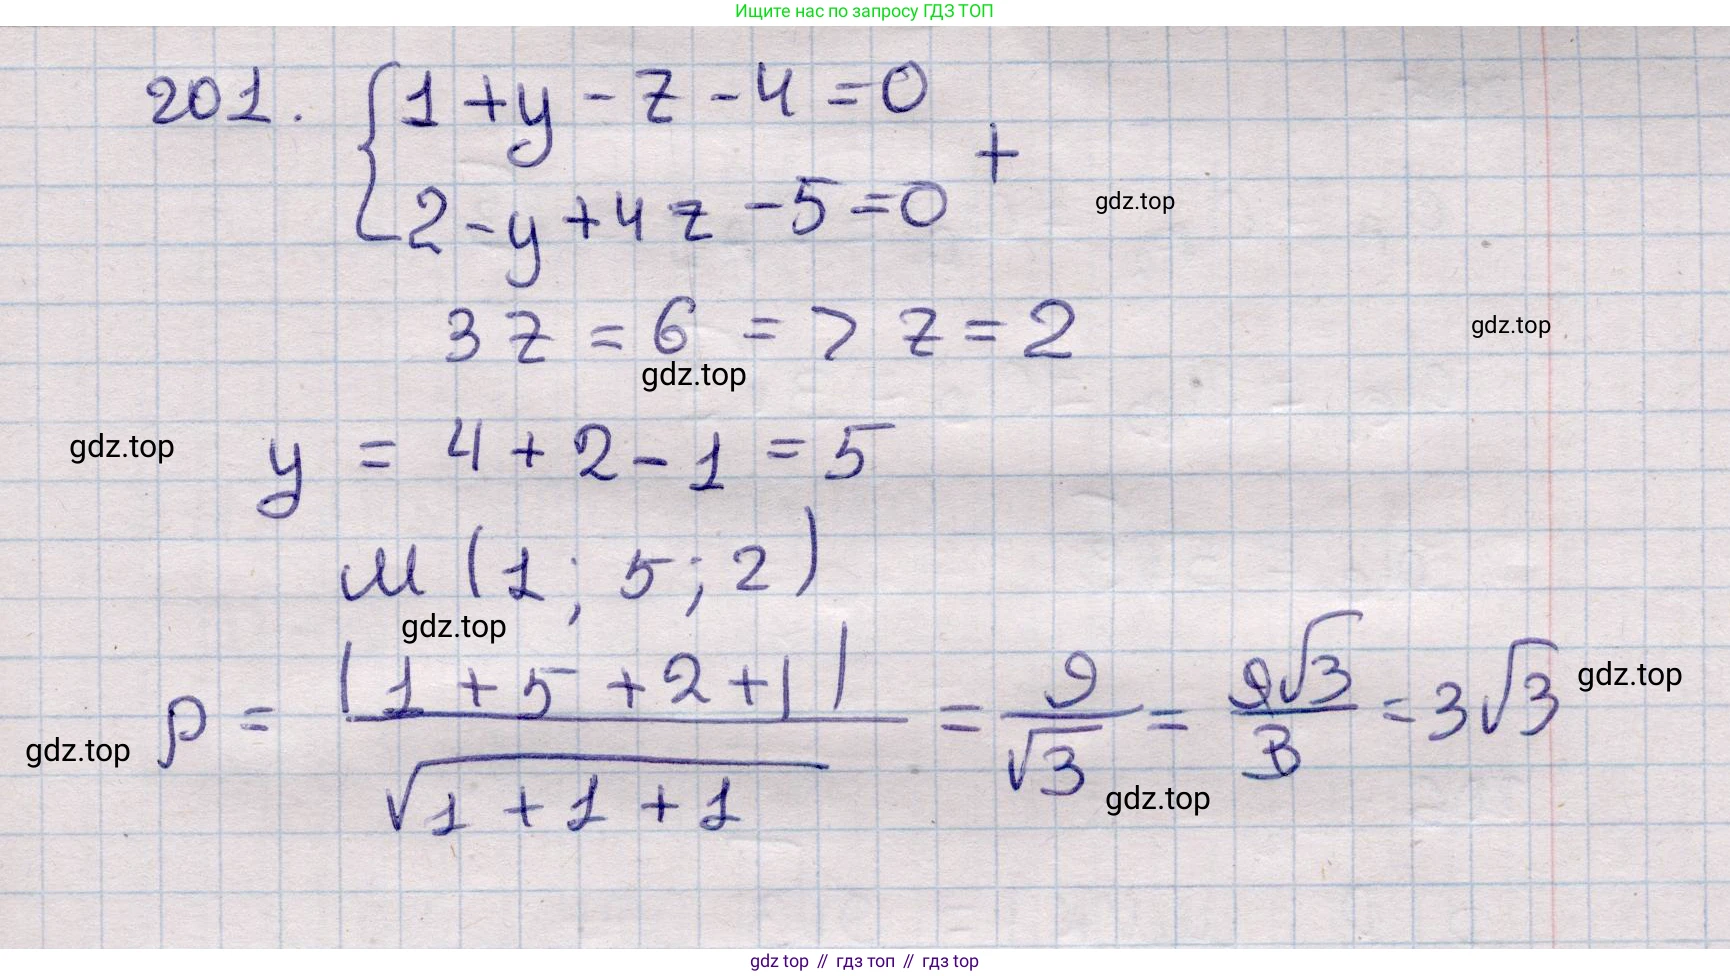 Ищите нас по запросу ГДЗ ТОП
201. { 1 + y - z - 4 = 0
2 - y + 4z - 5 = 0 +
gdz.top
3z = 6 => z = 2
gdz.top
gdz.top
gdz.top
y = 4 + 2 - 1 = 5
M (1; 5; 2)
gdz.top
ρ = |1 + 5 + 2 + 1| / √(1 + 1 + 1) = 9/√3 = 9√3/3 = 3√3
gdz.top
gdz.top
gdz.top
gdz top // гдз топ // гдз top